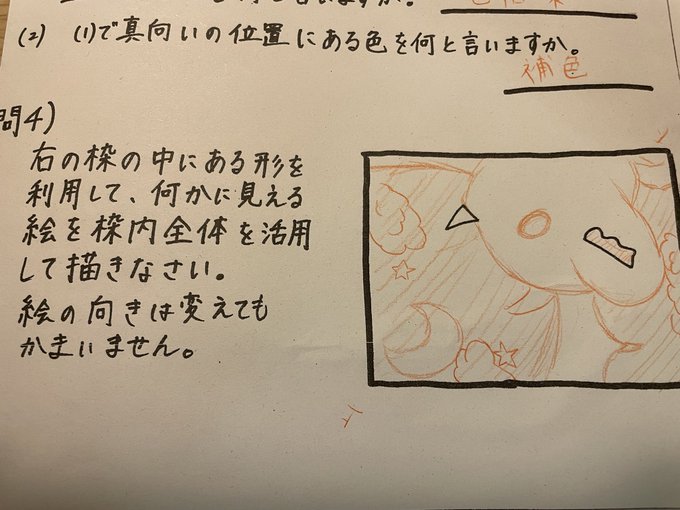 と言いますか。
(2) (1)で真向いの位置にある色を何と言いますか。
補色
問4)
右の枠の中にある形を
利用して、何かに見える
絵を枠内全体を活用
して描きなさい。
絵の向きは変えても
かまいません。